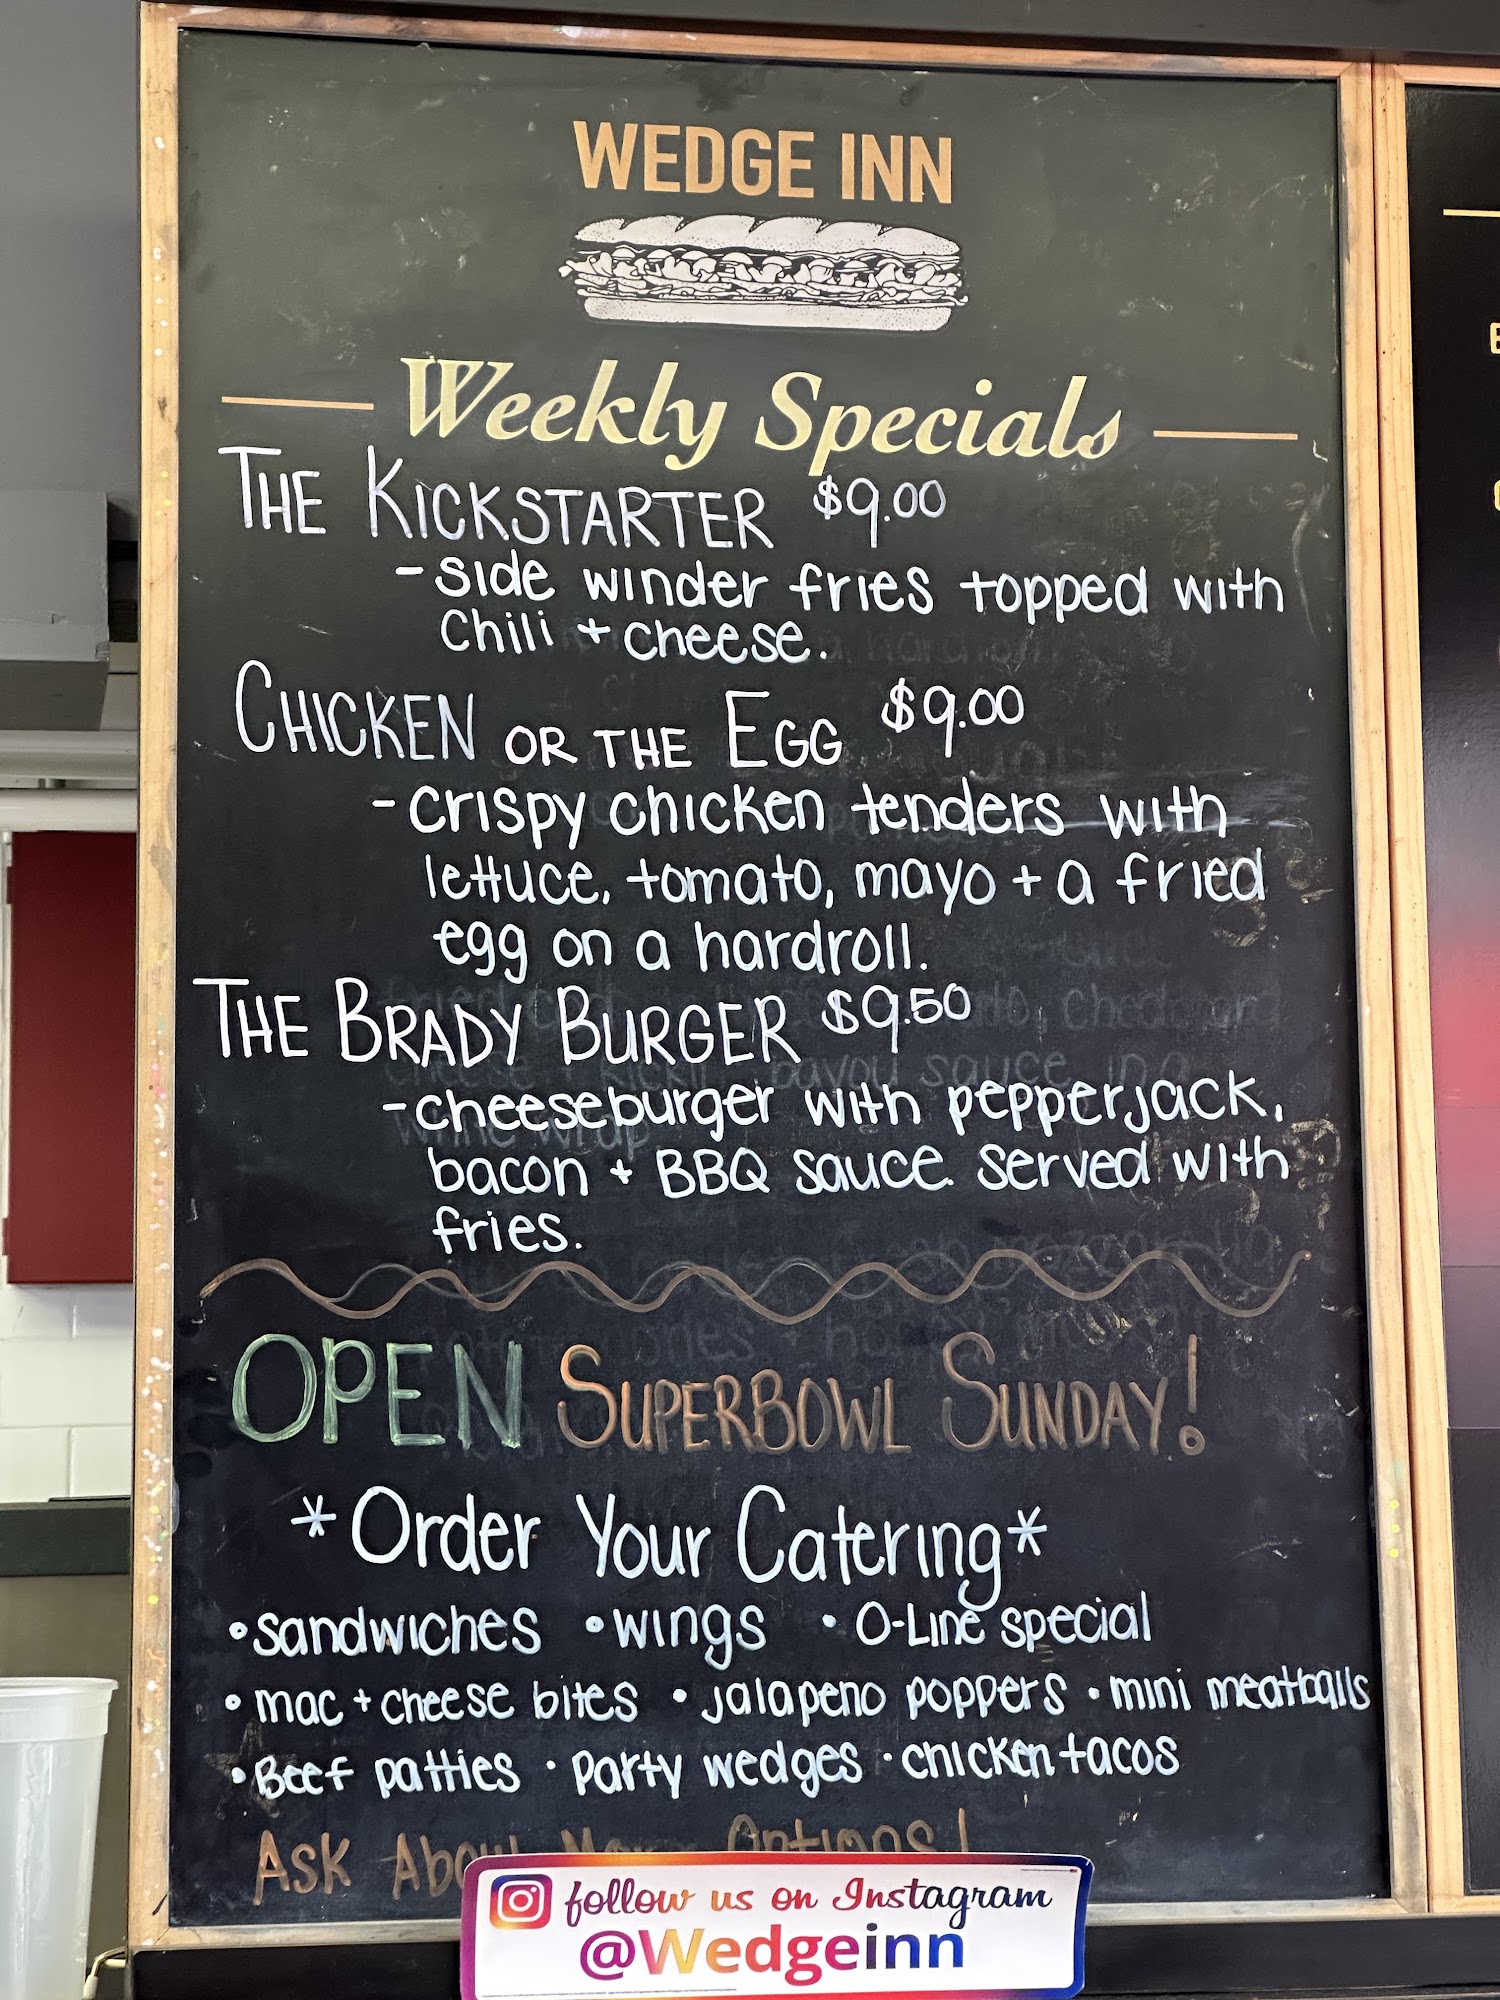 WEDGE INN
Weekly Specials
THE KICKSTARTER $9.00
- side winder fries topped with
chili + cheese.
CHICKEN OR THE EGG $9.00
- crispy chicken tenders with
lettuce, tomato, mayo + a fried
egg on a hardroll.
THE BRADY BURGER $9.50
- cheeseburger with pepperjack,
bacon + BBQ sauce. served with
fries.
OPEN SUPERBOWL SUNDAY!
*Order Your Catering*
• sandwiches • wings • O-Line special
• mac + cheese bites • jalapeno poppers • mini meatballs
• Beef patties • Party wedges • chicken tacos
ASK About More Options!
follow us on Instagram
@Wedgeinn